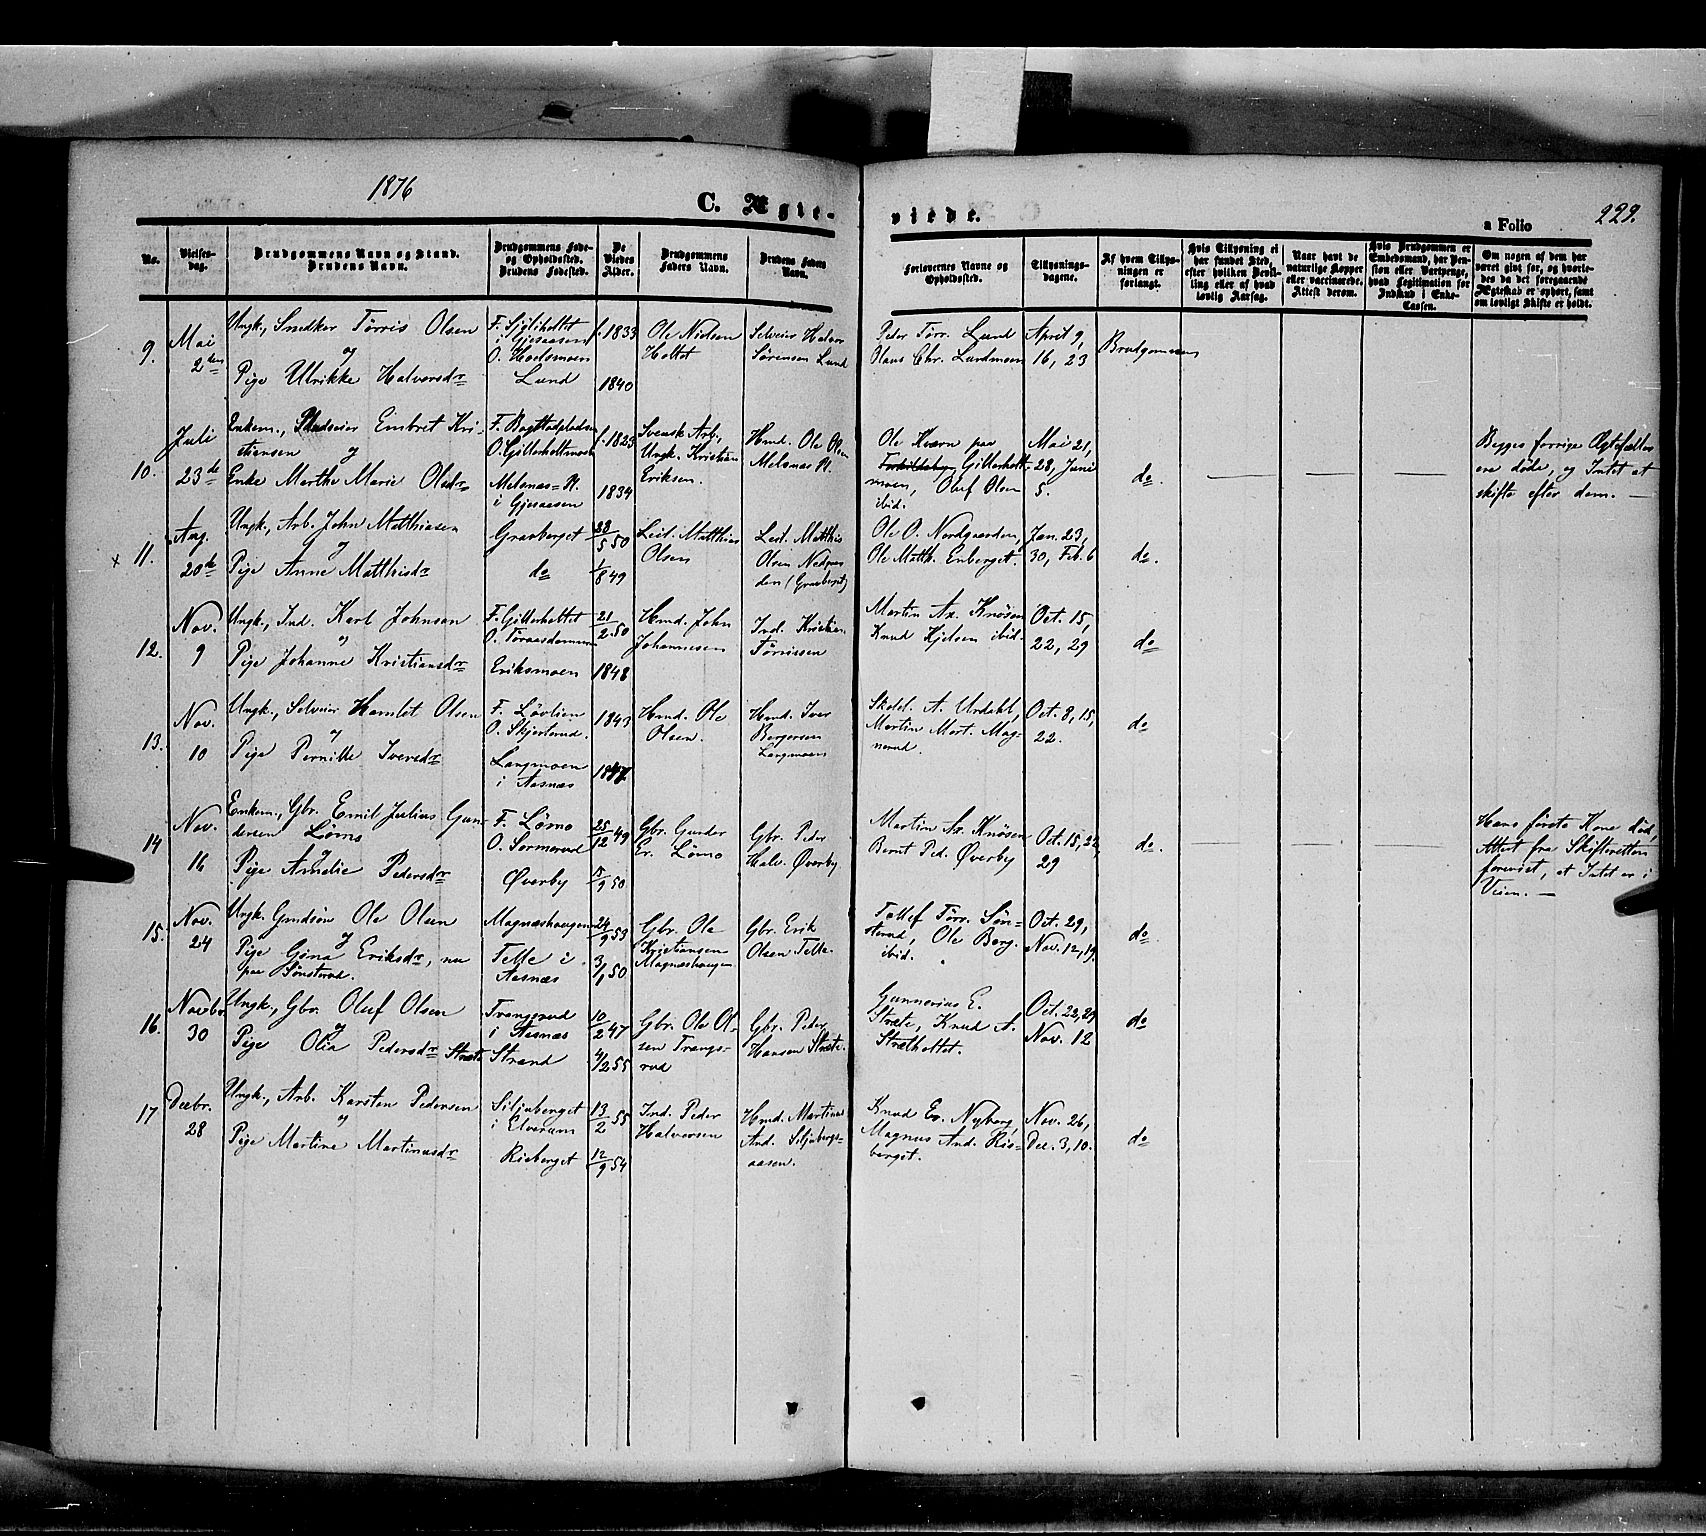 1876
C. Ægte-
viede.
a Folio
229.
No.
Vielses-
dag.
Brudgommens Navn og Stand.
Brudens Navn.
Brudgommens Føde-
og Opholdssted.
Brudens Fødested.
De
Viedes
Alder.
Brudgommens
Faders Navn.
Brudens Faders
Navn.
Forlovernes Navne og
Opholdssted.
Tillysnings-
dagene.
Af hvem Tillys-
ningen er
forlangt.
Hvis Tillysning ei
har fundet Sted,
efter hvilken Bevil-
ling eller af hvad
lovlig Aarsag.
Naar havt de
naturlige Kopper
eller vaccinerede.
Attest derom.
Hvis Brudgommen er
Embedsmand, har Pen-
sion eller Vartpenge,
hvad Legitimation for
Indskud i Enke-
Cassen.
Om nogen af dem har
været gift før, og hvorle-
des da det foregaaende
Ægteskab er ophørt, samt
om lovligt Skifte er holdt.
9.
Mai
2den
Ungk., Snedker Tørris Olsen
og
Pige Ulrikke Halvorsdr
i Gjesaasen
Lund
f. 1833
1840
Ole Nielsen
Holtet
Selveier Halvor
Sørensen Lund
Peder Tørr. Lund
Olaus Chr. Lundmoen
April 9,
16, 23
Brudgommen
10.
Juli
23de
Enkem., Embret Kri-
stiansen og
Enke Marthe Marie Olsdr
O. Gitterholtmoen
Melsnæs-Pl.
i Gjesaasen
f. 1823
1834
Svensk Arb.,
Ungk. Kristian
Eriksen.
Hmd. Ole Olsen
Melsnæs Pl.
Ole Kværn paa
Gitterholt-
moen, Oluf Olsen
ibid.
Mai 21,
28, Juni
5.
do.
Begges forrige Ægtefæller
ere døde, og Intet at
skifte efter dem. —
x 11.
Aug.
20de
Ungk., Arb. John Matthiasen
og
Pige Anne Matthisdr
Gravberget
do
28/5 50
1/8 49
Leil. Matthias
Olsen
Leil. Matthis
Olsen Nedgaar-
den (Gravberget)
Ole O. Nordgaarden,
Ole Matth. Enberget.
Jan. 23,
30, Feb. 6
do.
12.
Nov.
9
Ungk., Ind. Karl Johnsen
og
Pige Johanne Kristiansdr
F. Gitterholtet
Eriksmoen
21/2 50
1848
Hmd. John
Johannesen
Ind. Kristian
Tørrissen
Martin Ax. Knøsen
Knud Kjelsen ibid.
Oct. 15,
22, 29
do
13.
Nov.
10
Ungk., Selveier Hamlet Olsen
og
Pige Pernille Iversdr
F. Løvlien
O. Skjesterud.
Langmoen
i Aasnæs
1843
1847
Hmd. Ole
Olsen.
Hmd. Iver
Bergersen
Langmoen
Skolel. A. Urdahl,
Martin Mort. Mag-
nerud.
Oct. 8, 15,
22.
do
14
Nov.
16
Enkem., Gbr. Emil Julius Gun-
dersen Lømo
og
Pige Amelie Pedersdr
F. Lømo
O. Sormerud
Øverby
25/12 49
/9 50
Gbr. Gunder
Er. Lømo
Gbr. Peder
Halv. Øverby
Martin Ax. Knøsen
Bernt Ped. Øverby
Oct. 15, 22,
29
do.
Hans første Kone død,
Attest fra Skifteretten
forevist, at Intet er i
Veien. —
15.
Nov.
24
Ungk. Gmdsøn Ole Olsen
og
Pige Gøna Eriksdr, nu
paa Sønsterud.
Magnæshaugen
Telle i
Aasnæs
24/9 53
50
Gbr. Ole
Kristiansen
Magnæshaugen
Gbr. Erik
Olsen Telle
Tollef Tørr. Søn-
sterud, Ole Berg.
ibid.
Oct. 29,
Nov. 12, 19.
do.
16.
Novbr.
30
Ungk., Gbr. Oluf Olsen
og
Pige Olia Pedersdr Stræte
Trangsrud
i Aasnæs
Strand
10/2 47
4/2 55
Gbr. Ole Ol-
sen Trangs-
rud
Gbr. Peder
Hansen Stræte
Gunnerius E.
Stræte, Knud A.
Strætholtet.
Oct. 22, 29
Nov. 12
do
17
Decbr.
28
Ungk., Arb. Karsten Pedersen
og
Pige Martine Martinusdr
Siljuberget
i Elverum
Risberget
13/2 55
12/9 54
Ind. Peder
Halvorsen
Hmd. Martinus
And. Siljubergs-
aasen.
Knud Er. Nyberg,
Magnus And. Ris-
berget.
Nov. 26,
Dec. 3, 10.
do